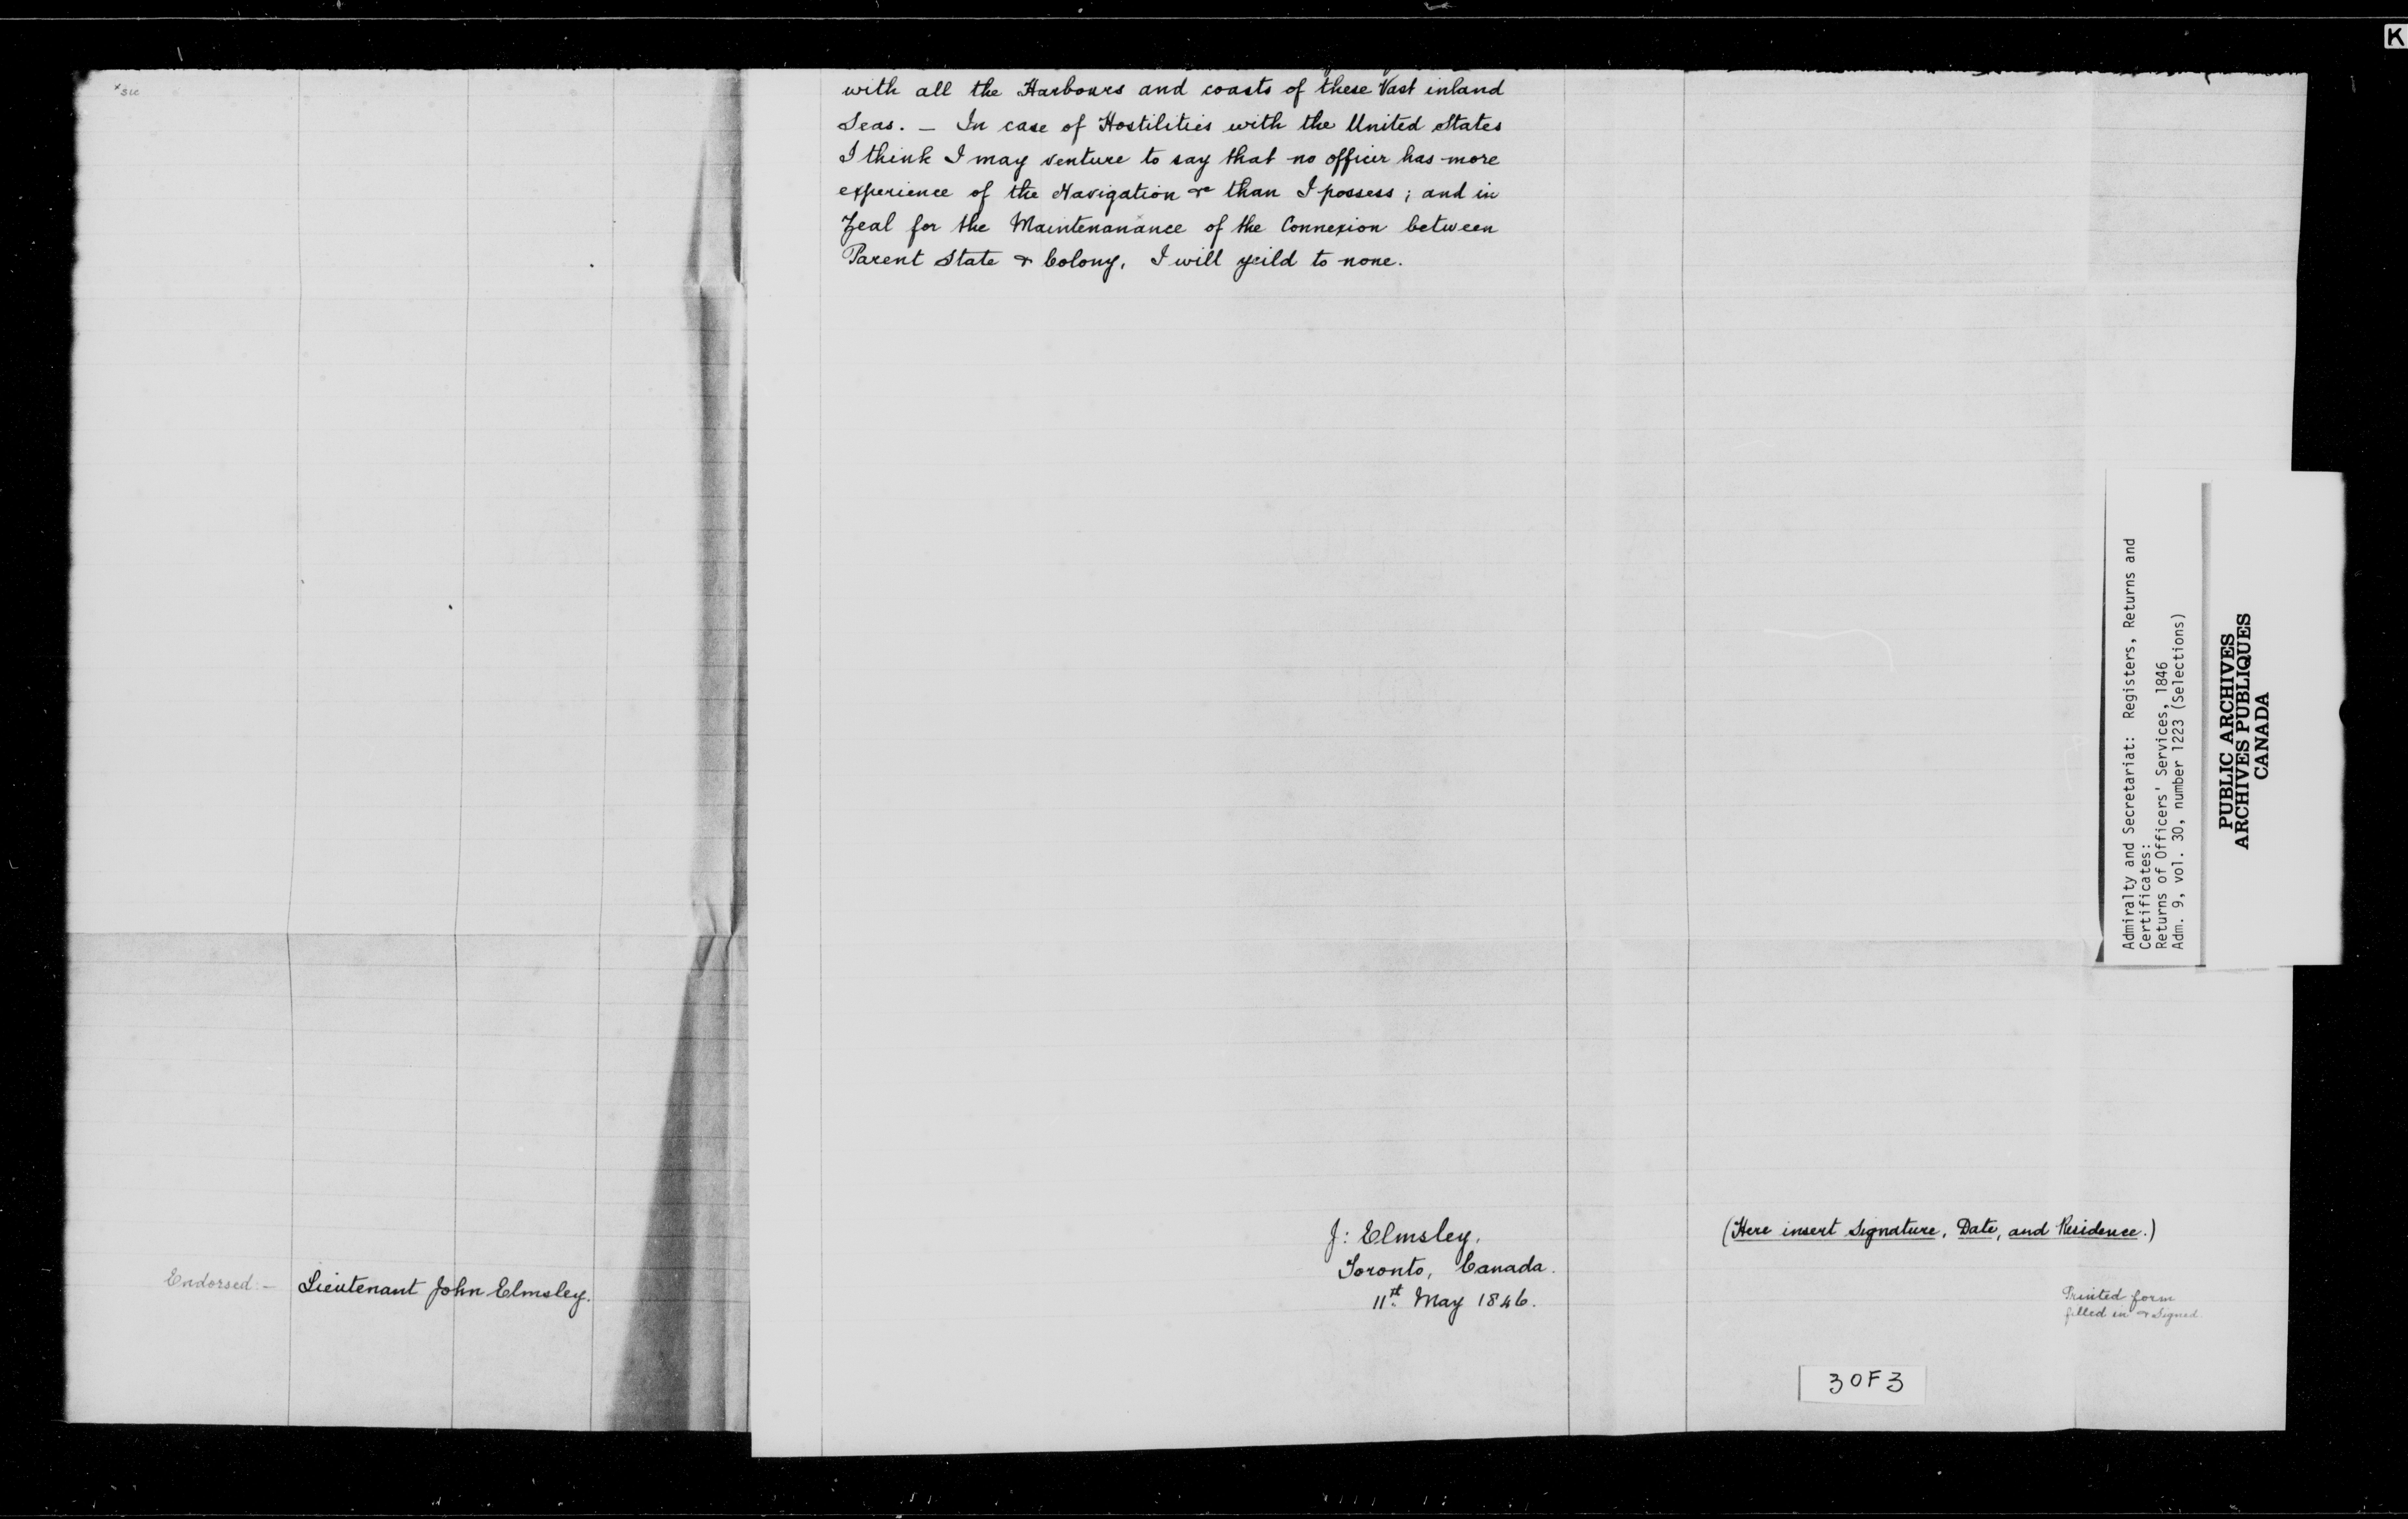 K
x sic
with all the Harbours and coasts of these Vast inland
Seas. – In case of Hostilities with the United States
I think I may venture to say that no officer has more
experience of the Navigation &c than I possess; and in
Zeal for the Maintenanance x of the Connexion between
Parent State & Colony, I will yeild to none.
J: Elmsley,
Toronto, Canada.
11st. May 1846.
(Here insert Signature, Date, and Residence.)
Endorsed:– Lieutenant John Elmsley.
Printed form
filled in & signed
3 OF 3
Admiralty and Secretariat: Registers, Returns and
Certificates:
Returns of Officers' Services, 1846
Adm. 9, vol. 30, number 1223 (Selections)
PUBLIC ARCHIVES
ARCHIVES PUBLIQUES
CANADA